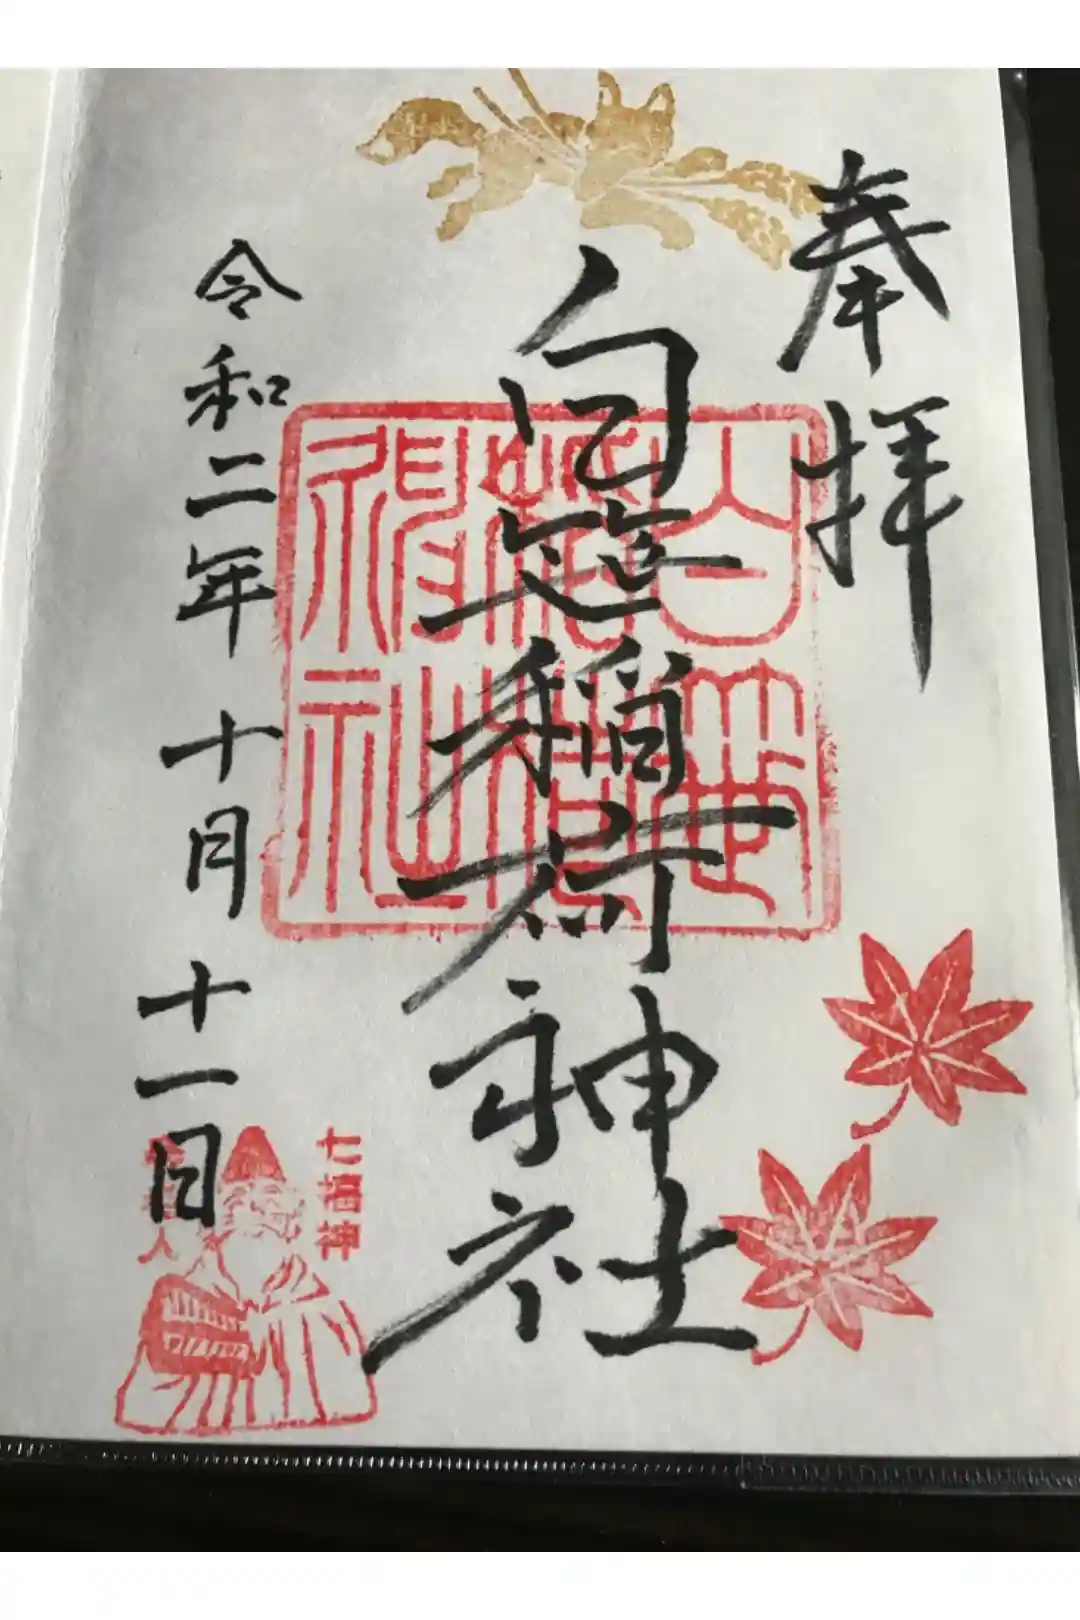 奉拝
白笹稲荷神社
白笹
稲荷
神社
令和二年十月十一日
七福神
寿老人